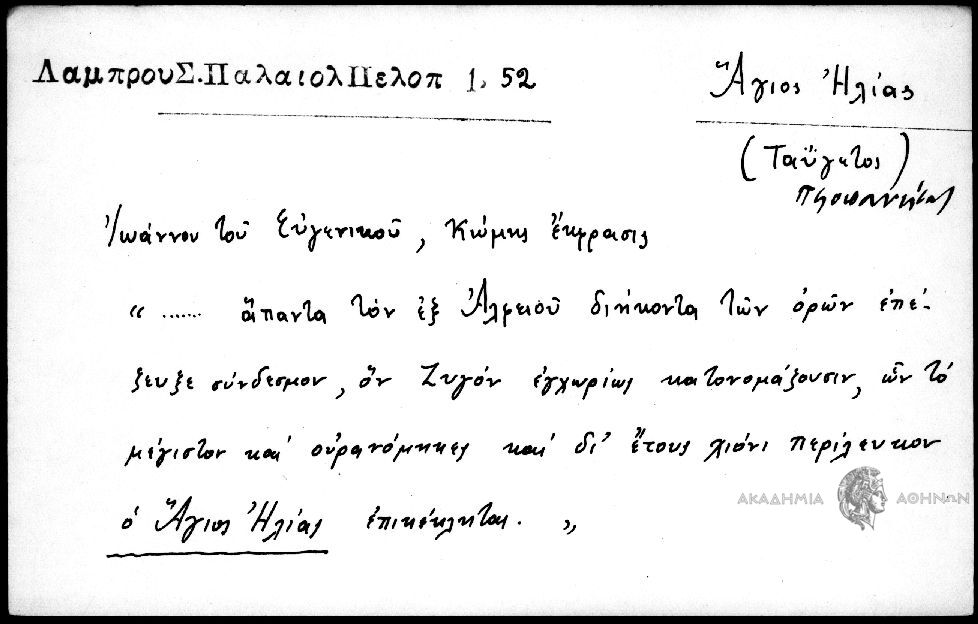 Λαμπρου Σ. Παλαιολ Πελοπ 1, 52
Ἅγιος Ἠλίας
(Ταΰγετος)
Ἰωάννου τοῦ Εὐγενικοῦ, Κώμης ἔκφρασις
“ ....... ἅπαντα τόν ἐξ Ἀλφειοῦ διήκοντα τῶν ὀρῶν ἐπέ-
ξευξε σύνδεσμον, ὅν Ζυγόν ἐγχωρίως κατονομάζουσιν, ὧν τό
μέγιστον καί οὐρανόμηκες καί δι’ ἔτους χιόνι περίλευκον
ὁ Ἅγιος Ἠλίας ἐπικέκληται. „
ΑΚΑΔΗΜΙΑ ΑΘΗΝΩΝ